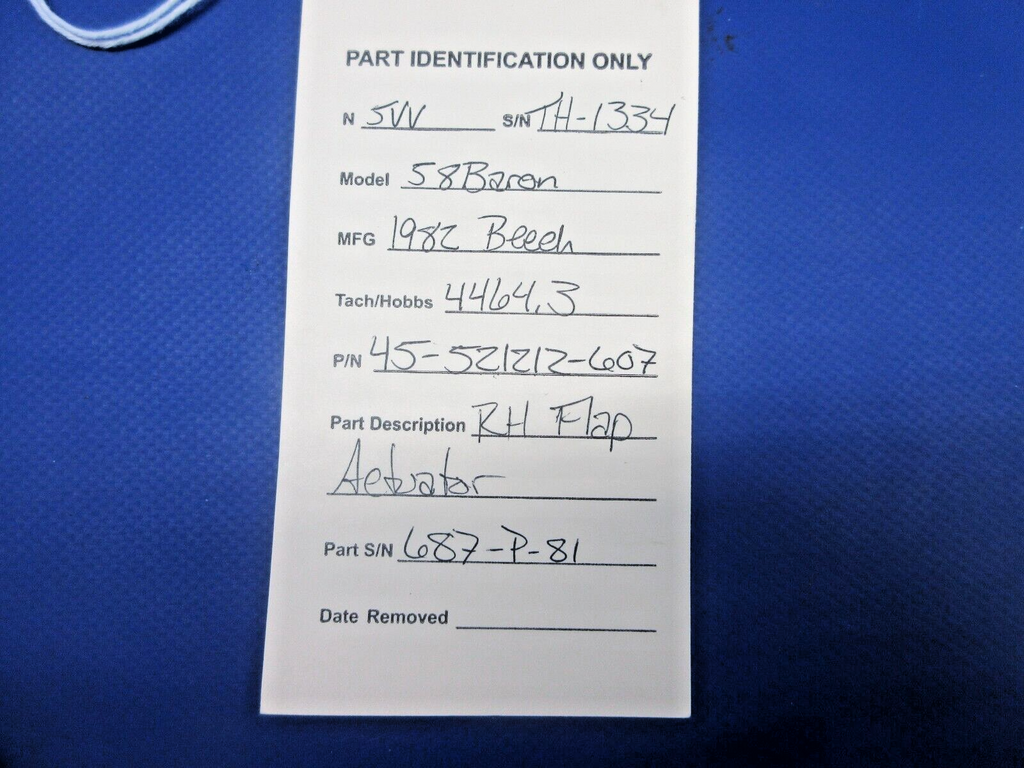 PART IDENTIFICATION ONLY
N 5VV S/N TH-1334
Model 58 Baron
MFG 1982 Beech
Tach/Hobbs 4464.3
P/N 45-521212-607
Part Description RH Flap
Actuator
Part S/N 687-P-81
Date Removed